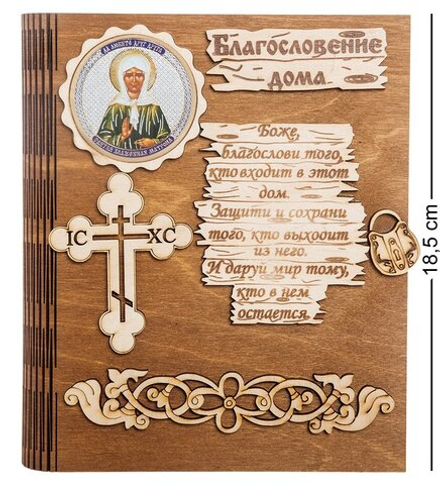 ДА ЛЮБИТЕ ДРУГ ДРУГА
СВЯТАЯ БЛАЖЕННАЯ МАТРОНА
Благословение
дома
Боже,
благослови того,
кто входит в этот
дом.
Защити и сохрани
того, кто выходит
из него.
И даруй мир тому,
кто в нем
остается.
IC XC
18,5 cm